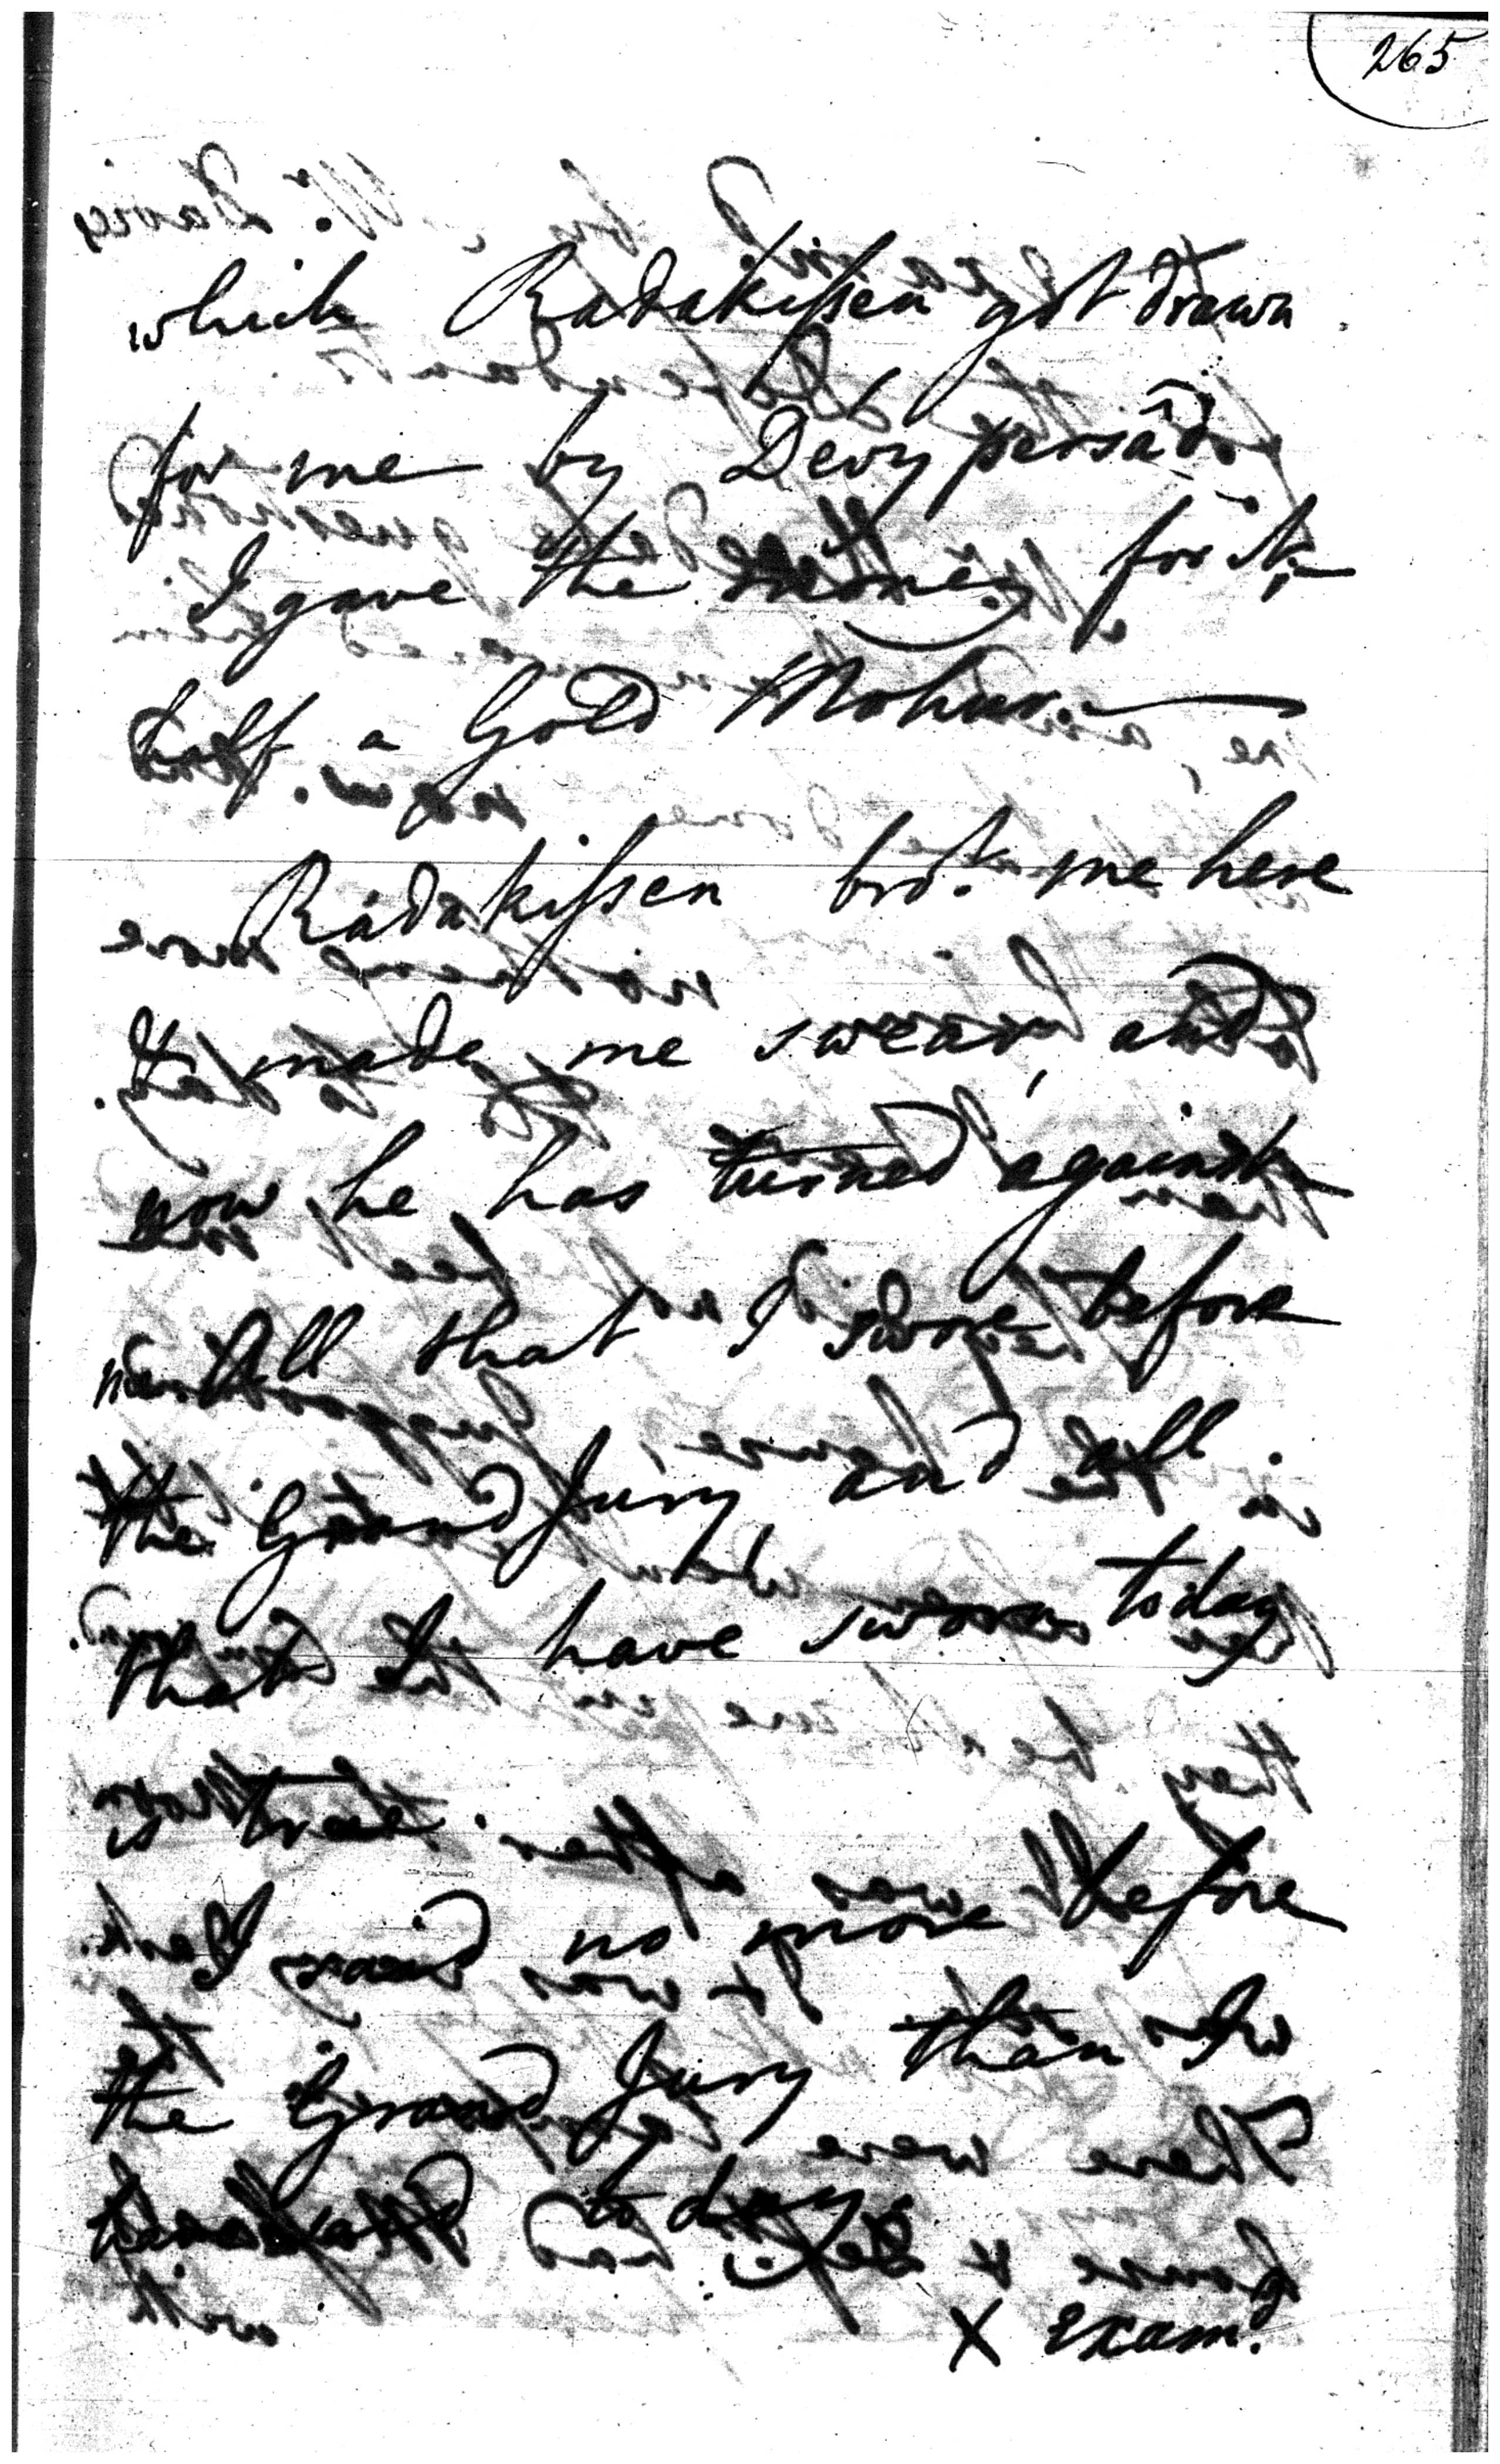 265
which Radakissen got drawn
for me by Devy persâd.
I gave the money for it,—
half a Gold Mohur.—
Radakissen bro.t me here
& made me swear, and
now he has turned against
me. All that I swore before
the Grand Jury and all
that I have sworn today
is true.
I said no more before
the Grand Jury than I
have said to day.
X Exam.d